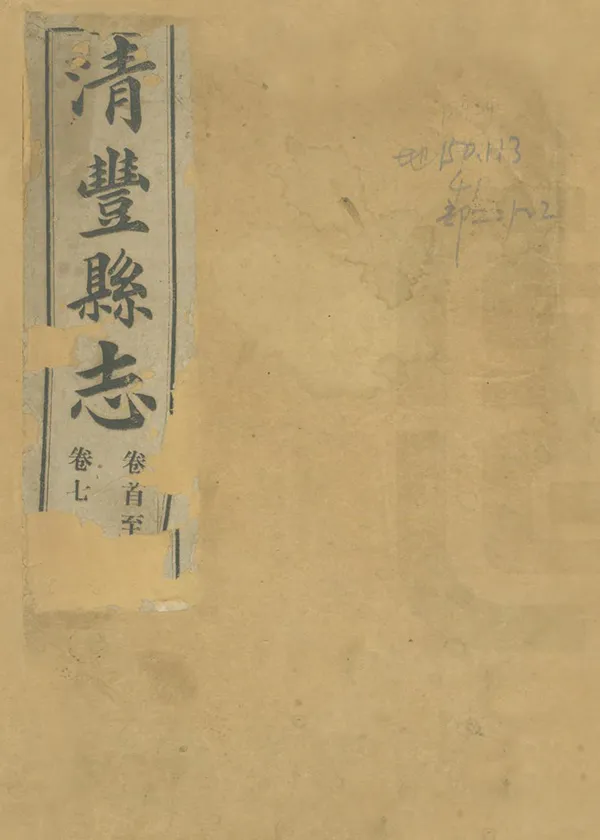 清豐縣志
卷首至
卷七
地150.113
41